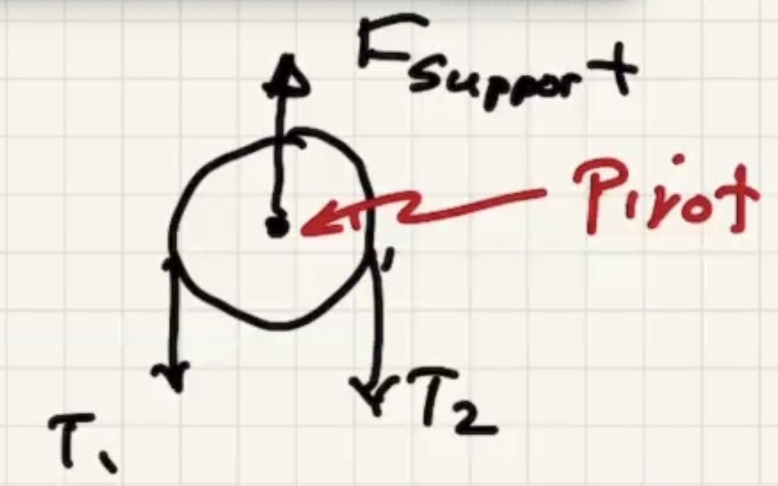 F_support
Pivot
T₁
T₂